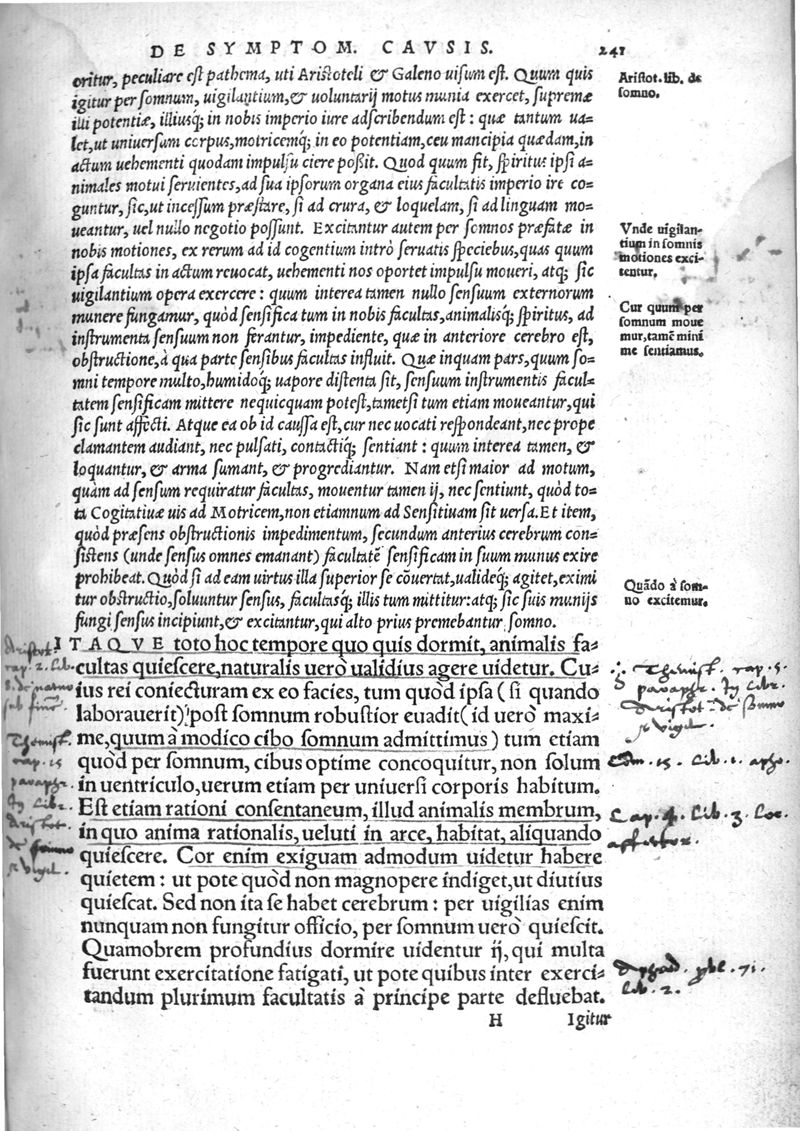 DE SYMPTOM. CAVSIS. 241
oritur, peculiare est pathema, uti Aristoteli & Galeno uisum est. Quum quis
igitur per somnum, uigilantium, & uoluntarij motus munia exercet, supremæ
illi potentiæ, illiusq; in nobis imperio iure adscribendum est : quæ tantum ua-
let, ut uniuersum corpus, motricemq; in eo potentiam, ceu mancipia quædam, in
actum uehementi quodam impulsu ciere poßit. Quod quum fit, spiritus ipsi a-
nimales motui seruientes, ad sua ipsorum organa eius facultatis imperio ire co-
guntur, sic, ut incessum præstare, si ad crura, & loquelam, si ad linguam mo-
ueantur, uel nullo negotio possunt. Excitantur autem per somnos præfatæ in
nobis motiones, ex rerum ad id cogentium intrò seruatis speciebus, quas quum
ipsa facultas in actum reuocat, uehementi nos oportet impulsu moueri, atq; sic
uigilantium opera exercere : quum interea tamen nullo sensuum externorum
munere fungamur, quòd sensifica tum in nobis facultas, animalisq; spiritus, ad
instrumenta sensuum non ferantur, impediente, quæ in anteriore cerebro est,
obstructione, à qua parte sensibus facultas influit. Quæ inquam pars, quum so-
mni tempore multo, humidoq; uapore distenta sit, sensuum instrumentis facul-
tatem sensificam mittere nequicquam potest, tametsi tum etiam moueantur, qui
sic sunt affecti. Atque ea ob id caussa est, cur nec uocati respondeant, nec prope
clamantem audiant, nec pulsati, contactiq; sentiant : quum interea tamen, &
loquantur, & arma sumant, & progrediantur. Nam etsi maior ad motum,
quàm ad sensum requiratur facultas, mouentur tamen ij, nec sentiunt, quòd to-
ta Cogitatiuæ uis ad Motricem, non etiamnum ad Sensitiuam sit uersa. Et item,
quòd præsens obstructionis impedimentum, secundum anterius cerebrum con-
sistens (unde sensus omnes emanant) facultatē sensificam in suum munus exire
prohibeat. Quòd si ad eam uirtus illa superior se cōuertat, ualideq; agitet, eximi
tur obstructio, soluuntur sensus, facultasq; illis tum mittitur: atq; sic suis munijs
fungi sensus incipiunt, & excitantur, qui alto prius premebantur somno.
ITAQVE toto hoc tempore quo quis dormit, animalis fa-
cultas quiescere, naturalis uerò ualidius agere uidetur. Cu-
ius rei coniecturam ex eo facies, tum quòd ipsa ( si quando
laborauerit) post somnum robustior euadit ( id uerò maxi-
me, quum à modico cibo somnum admittimus ) tum etiam
quòd per somnum, cibus optime concoquitur, non solum
in uentriculo, uerum etiam per uniuersi corporis habitum.
Est etiam rationi consentaneum, illud animalis membrum,
in quo anima rationalis, ueluti in arce, habitat, aliquando
quiescere. Cor enim exiguam admodum uidetur habere
quietem : ut pote quòd non magnopere indiget, ut diutius
quiescat. Sed non ita se habet cerebrum : per uigilias enim
nunquam non fungitur officio, per somnum uerò quiescit.
Quamobrem profundius dormire uidentur ij, qui multa
fuerunt exercitatione fatigati, ut pote quibus inter exerci-
tandum plurimum facultatis à principe parte defluebat.
H Igitur
Aristot. lib. de
somno.
Vnde uigilan-
tium in somnis
motiones exci-
tentur.
Cur quum per
somnum moue
mur, tamē mini
me sentiamus.
Quādo à som-
no excitemur.
Themist. cap. 5.
paraphr. libr.
Aristot. de somno
& vigil.
Com. 15. Lib. 1. apho.
Cap. 4. Lib. 3. Loc.
affector.
probl. 71.
Lib. 2.
Aristot.
cap. 2. Lib.
Themist.
cap. 15
paraphr.
libr.
Aristot.
de somno
& vigil.